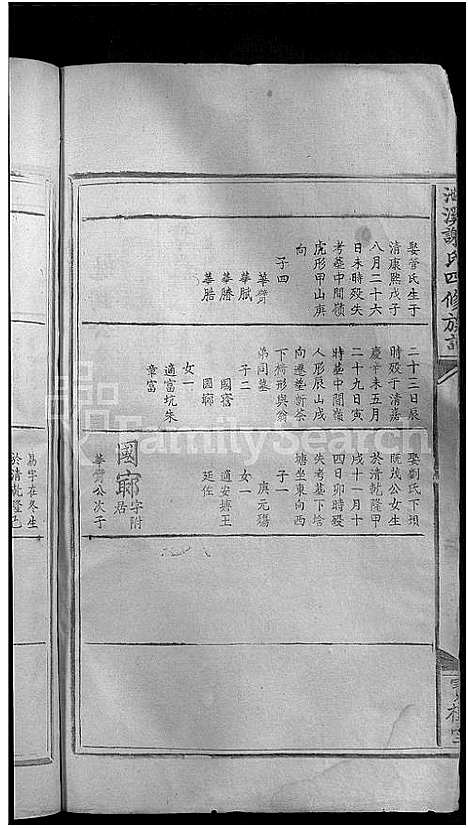 氏四修族
娶管氏生于
清康熙戊子
八月二十六
日未時歿失
考墓中間嶺
虎形甲山庚
向
子四
華贊
華賦
華賸
華腊
二十三日辰
時歿于清嘉
慶辛未五月
二十九日寅
時墓中間嶺
人形辰山戌
向遷塟新茶
下椅形與翁
弟同墓
子二
國窓
國鄉
女一
適富坑朱
章富
娶劉氏下須
院茂公女生
於清乾隆甲
戌十一月十
四日卯時歿
失考墓下培
塘坐東向西
子一
庚元殤
女一
適安塘王
廷佐
國寧字附
居
華贊公次子
易字在冬生
於清乾隆己
FamilySearch